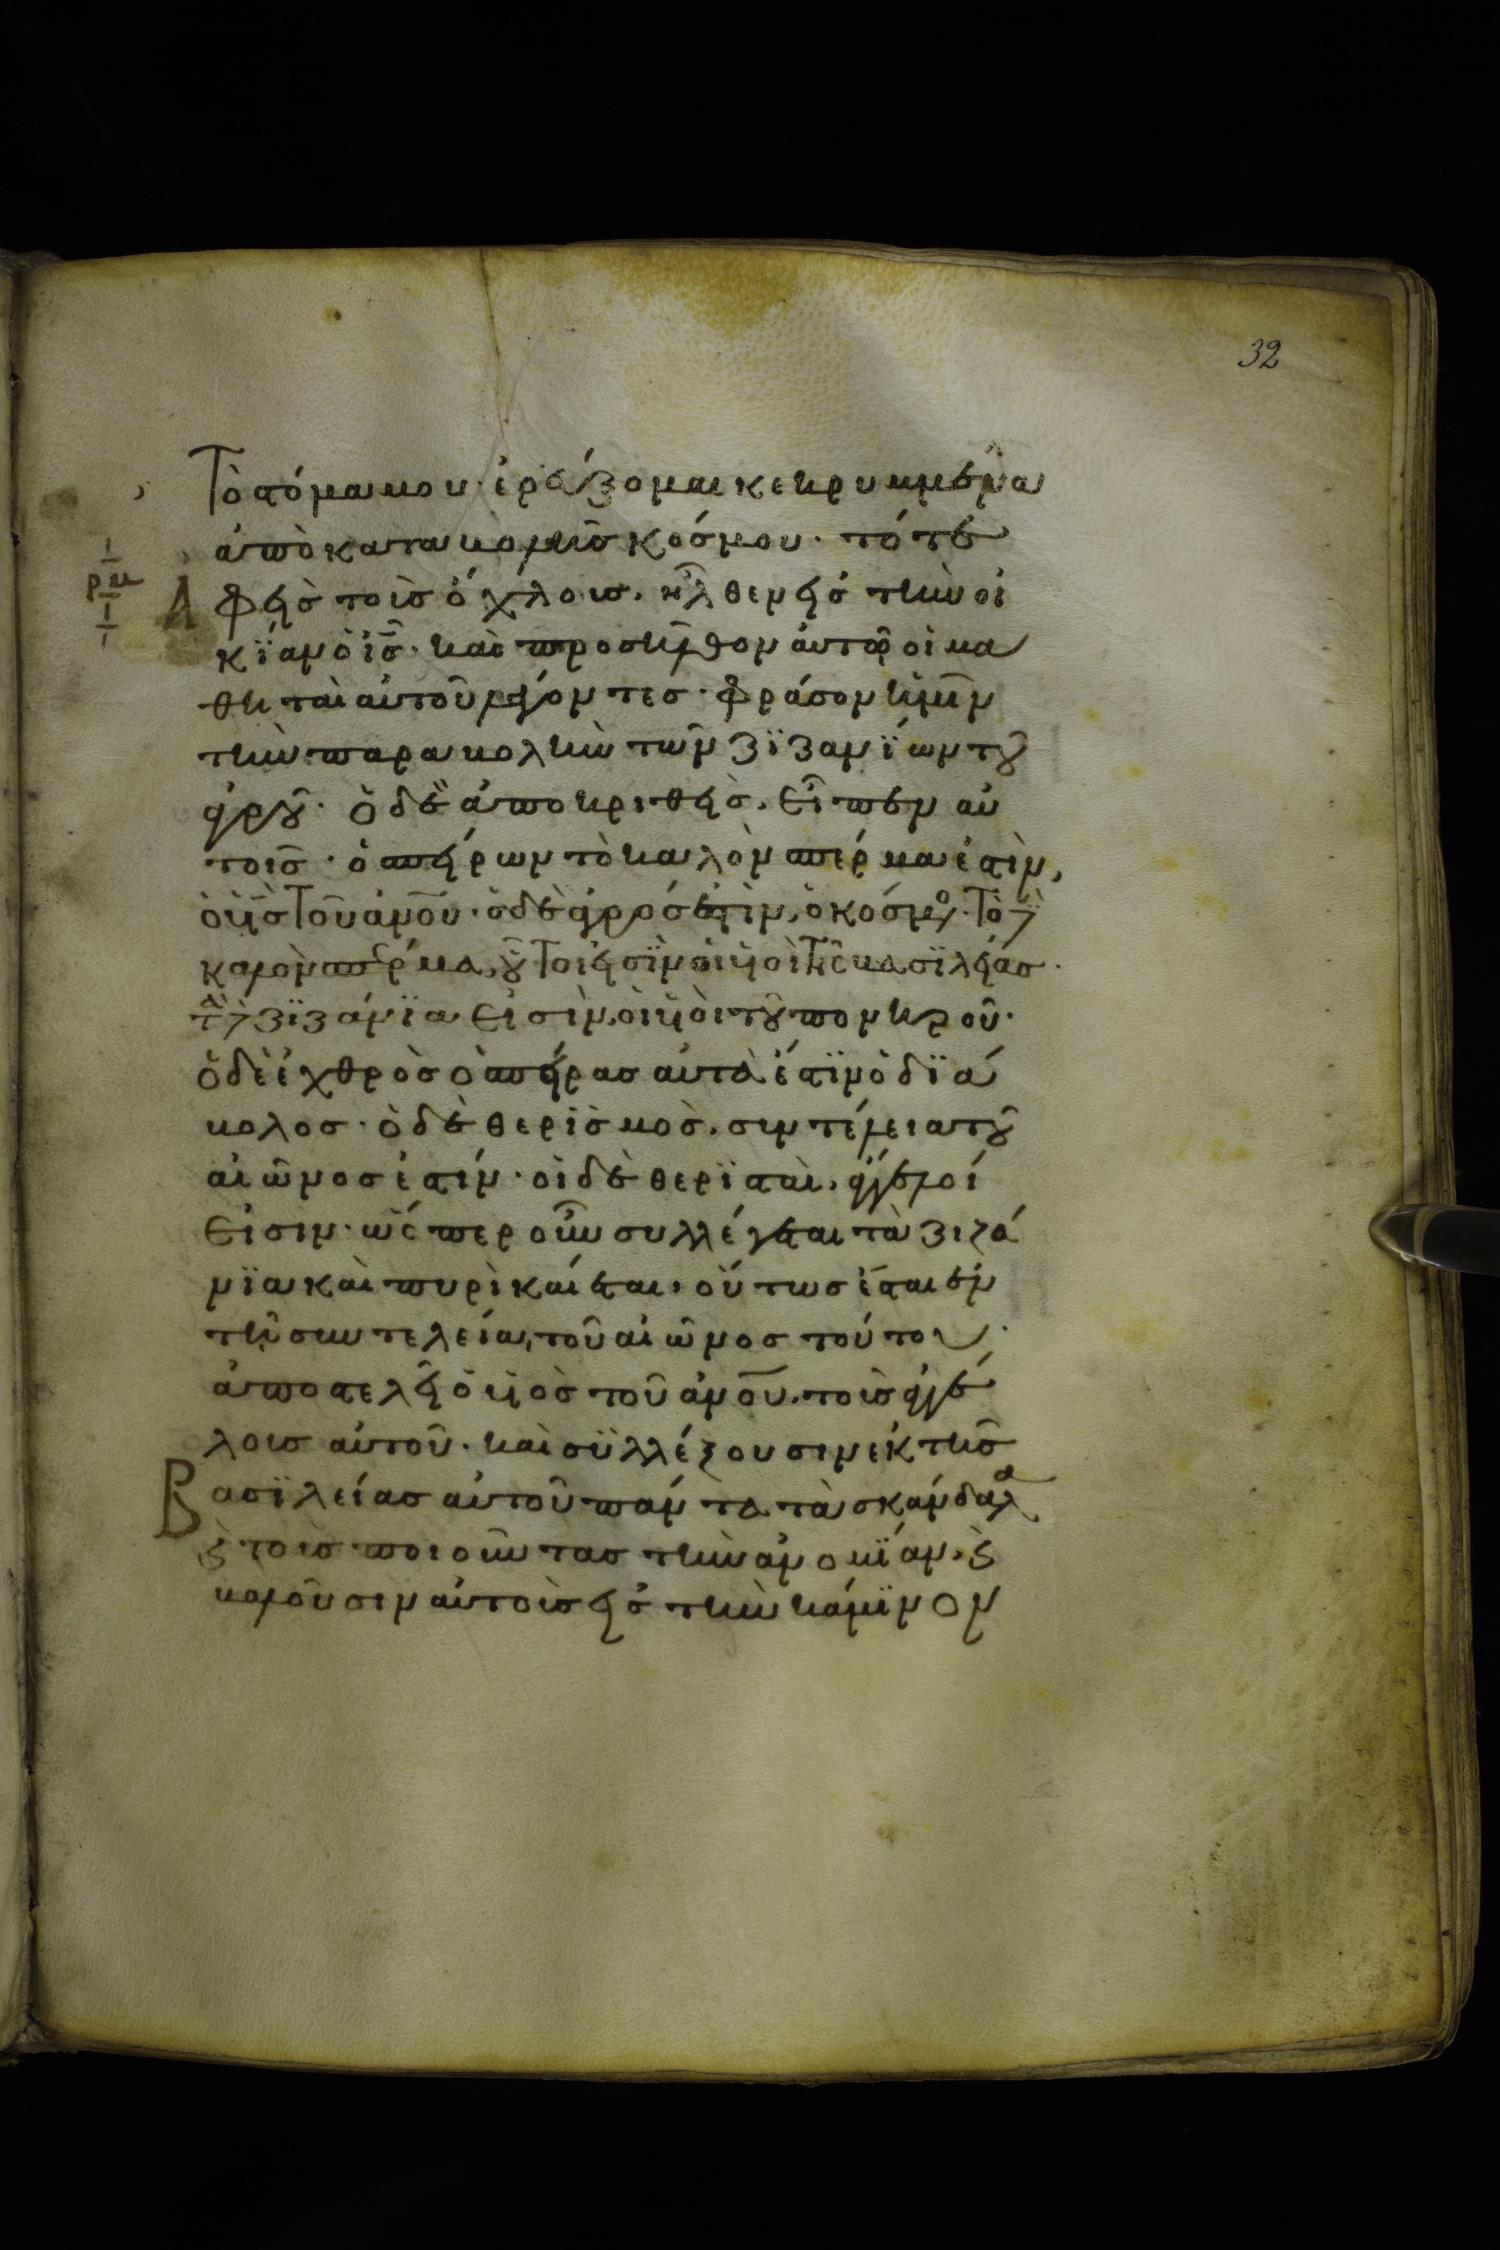 32
Τὸ στόμα μου· ἐρεύξομαι κεκρυμμένα
ἀπὸ καταβολῆς κόσμου· τότε
ρμ
ι
Ἀφεὶς τοὺς ὄχλους, ἦλθεν εἰς τὴν οἰ
κΐαν ὁ ἰς̅· καὶ προσῆλθον αὐτῶ οἱ μα
θηταὶ αὐτοῦ λέγοντες· φράσον ἡμῖν
τὴν παραβολὴν τῶν ζϊζανΐων τοῦ
ἀγροῦ· ὁ δὲ ἀποκριθεὶς, εἶπεν αὐ
τοῖς· ὁ σπείρων τὸ καλὸν σπέρμα ἐστὶν,
ὁ υἱὸς τοῦ ἀνου̅· ὁ δὲ ἀγρός ἐστϊν, ὁ κόσμος· τὸ δὲ
καλὸν σπέρμα, οὗτοι εἰσϊν οἱ υἱοὶ τῆς βασϊλείας·
τὰ δὲ ζϊζάνϊα εἰσὶν, οἱ υἱοὶ τοῦ πονηροῦ·
ὁ δὲ ἐχθρὸς ὁ σπείρας αὐτὰ ἐστϊν ὁ δϊά
βολος· ὁ δὲ θερϊσμὸς, συντέλεια τοῦ
αἰῶνος ἐστίν· οἱ δὲ θερϊσταὶ, ἄγγελοί
εἰσιν· ὥσπερ οὖν συλλέγεται τὰ ζιζά
νϊα καὶ πυρὶ καίεται, οὕτως ἔσται ἐν
τῆ συντελεία, τοῦ αἰῶνος τούτου·
ἀποστελεῖ ὁ υἱὸς τοῦ ἀνου̅, τοὺς ἀγγέ
λους αὐτοῦ· καὶ σϋλλέξουσιν ἐκ τῆς
Βασϊλείας αὐτοῦ πάντα τὰ σκάνδαλα
ϗ τοὺς ποιοῦντας τὴν ἀνομΐαν, ϗ
βαλοῦσιν αὐτοὺς εἰς τὴν κάμϊνον